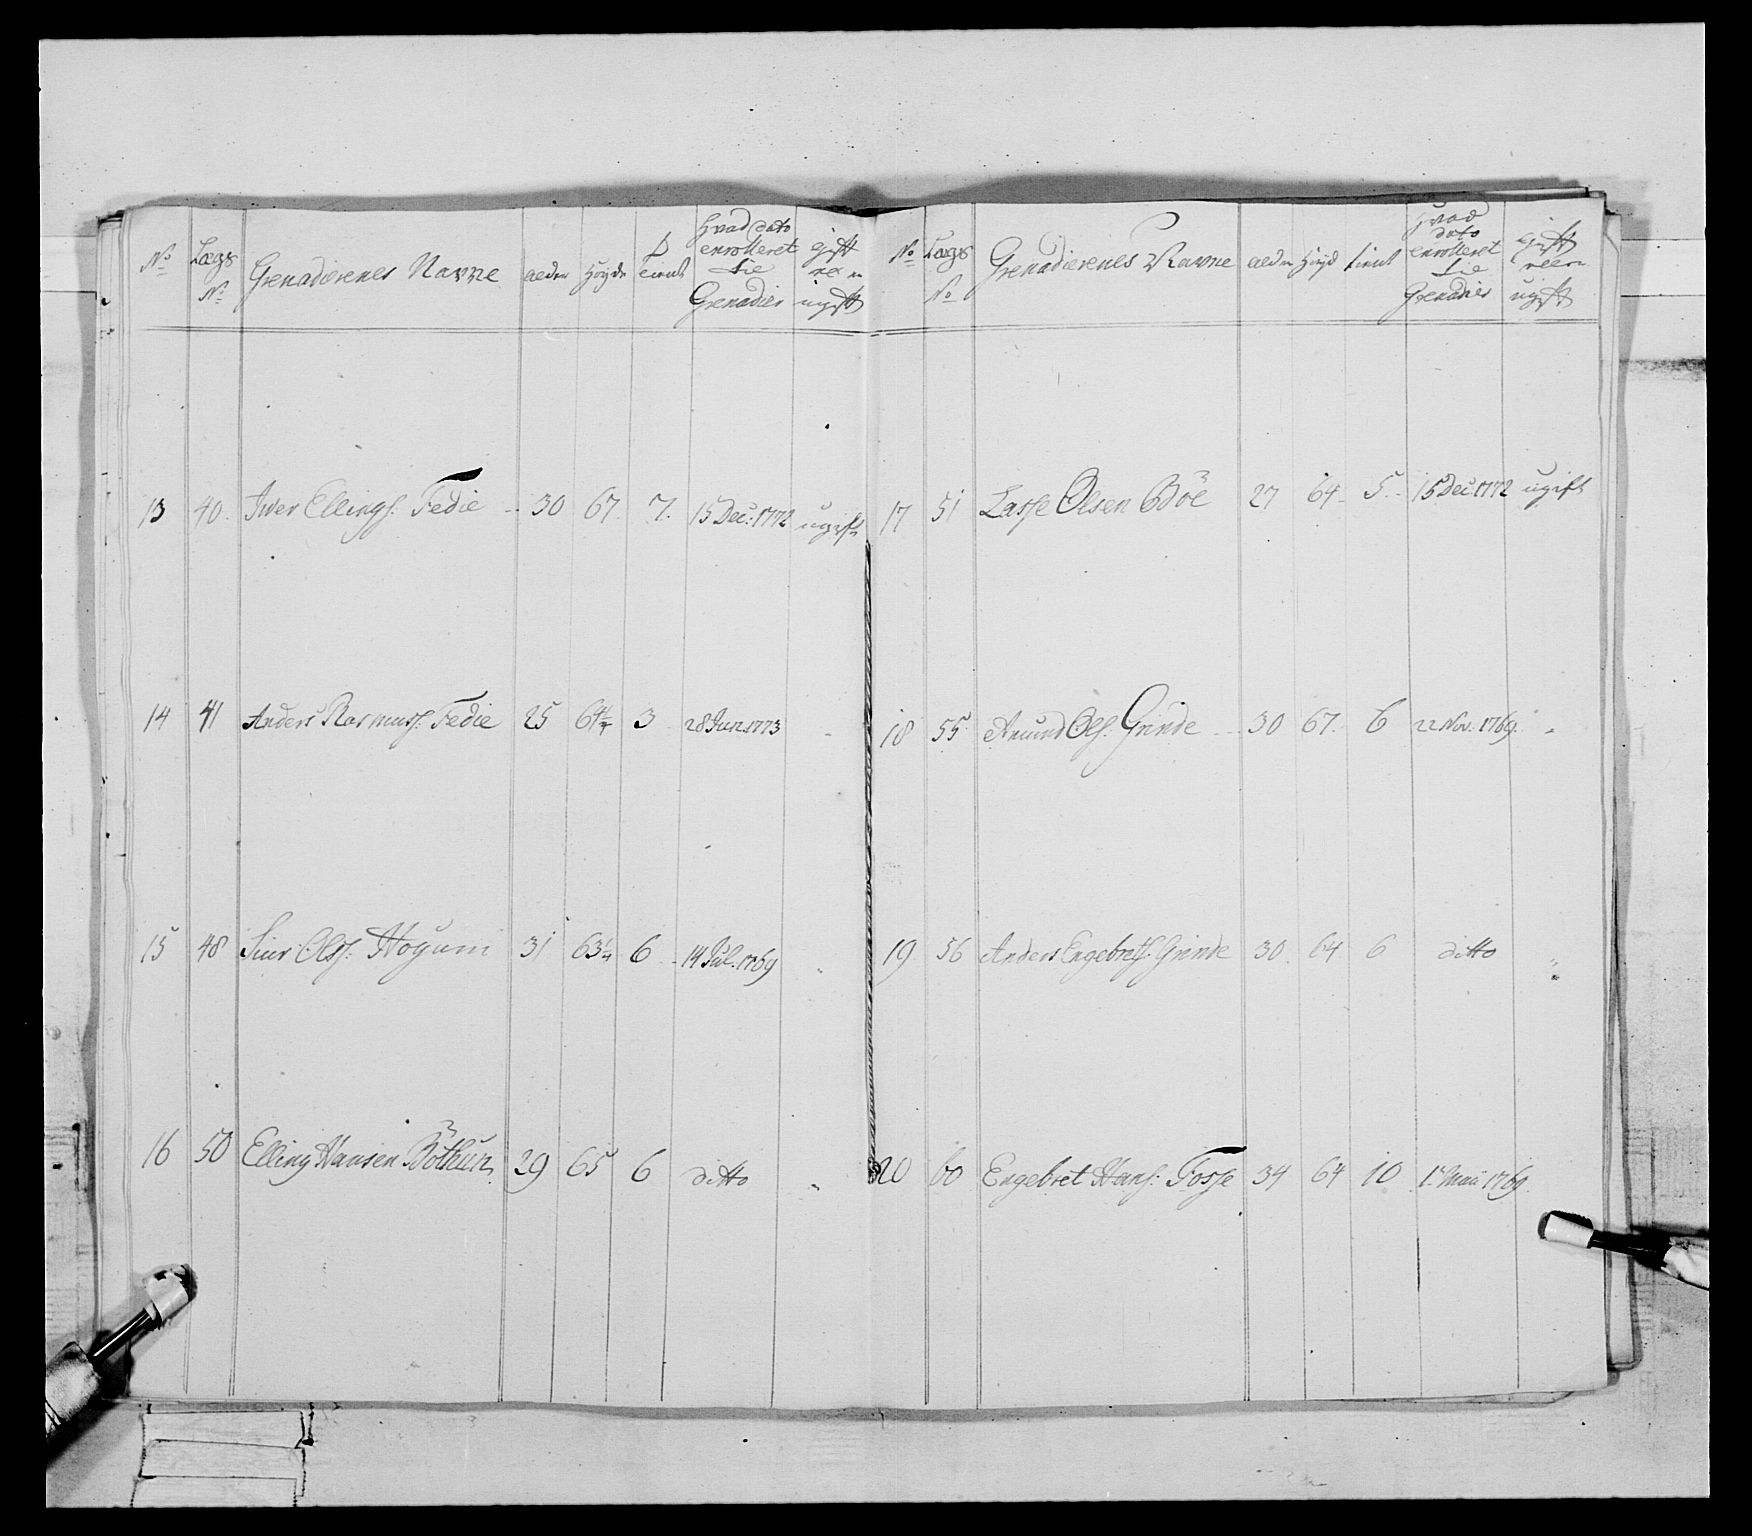 No Lægs No Grenaderenes Navne alder Høyde tient hvad dato enrolleret til Grenadier gift ugift
13 40. Iwer Ellings. Fedie 30 67. 7. 15 Dec: 1772 ugift
14 41 Anders Rasmuss. Fedie 25 64 3 28 Jun. 1773 "
15 48 Siur Olss: Høyum 31 63¼ 6 14 Jul. 1769 "
16 50 Elling Hansen Bøthun 29 65 6 ditto "
No Lægs No Grenaderenes Navne alder Høyd tient Hvad dato enrolleret til Grenadier gift ugift
17 51 Lasse Olsen Bøe 27 64 5 15 Dec 1772 ugift
18 55 Amund Ols. Grinde 30 67. 6 22 Nov. 1769. "
19 56 Anders Engebrets. Grinde 30 64 6 ditto "
20 60 Engebret Hans: Fosse 34 64 10 1. Maii 1769.